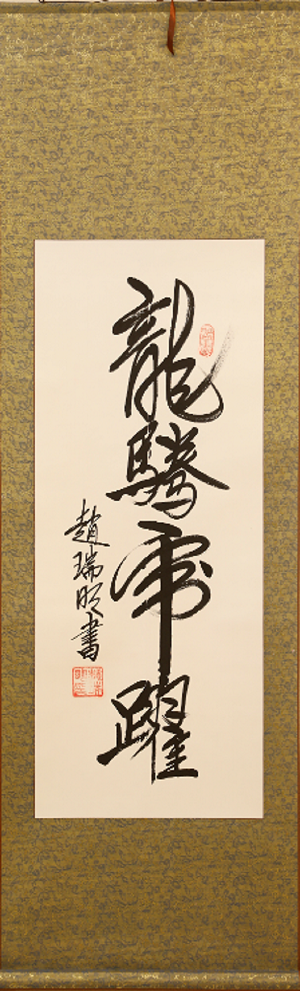 龍騰虎躍
趙瑞明書